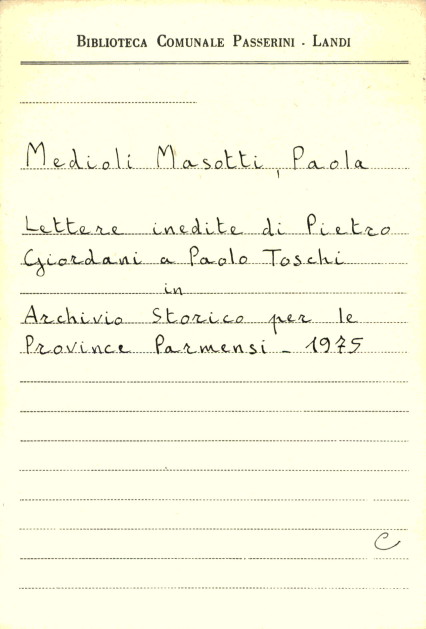 BIBLIOTECA COMUNALE PASSERINI - LANDI
Medioli Masotti, Paola
Lettere inedite di Pietro
Giordani a Paolo Toschi
in
Archivio Storico per le
Province Parmensi - 1975
C